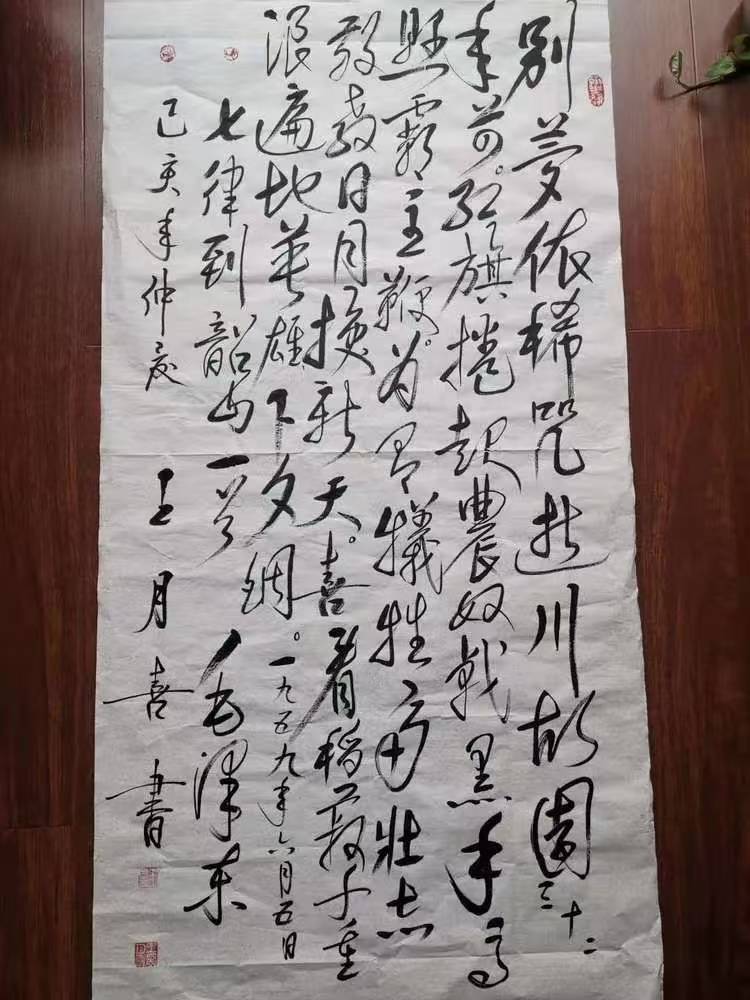 别梦依稀咒逝川故园三十二
年前。红旗捲起農奴戟黑手高
懸霸主鞭。为有犧牲多壮志
敢教日月换新天。喜看稻菽千重
浪遍地英雄下夕烟。一九五九年六月五日
七律到韶山一首 毛泽东
己亥年仲夏 王月喜書